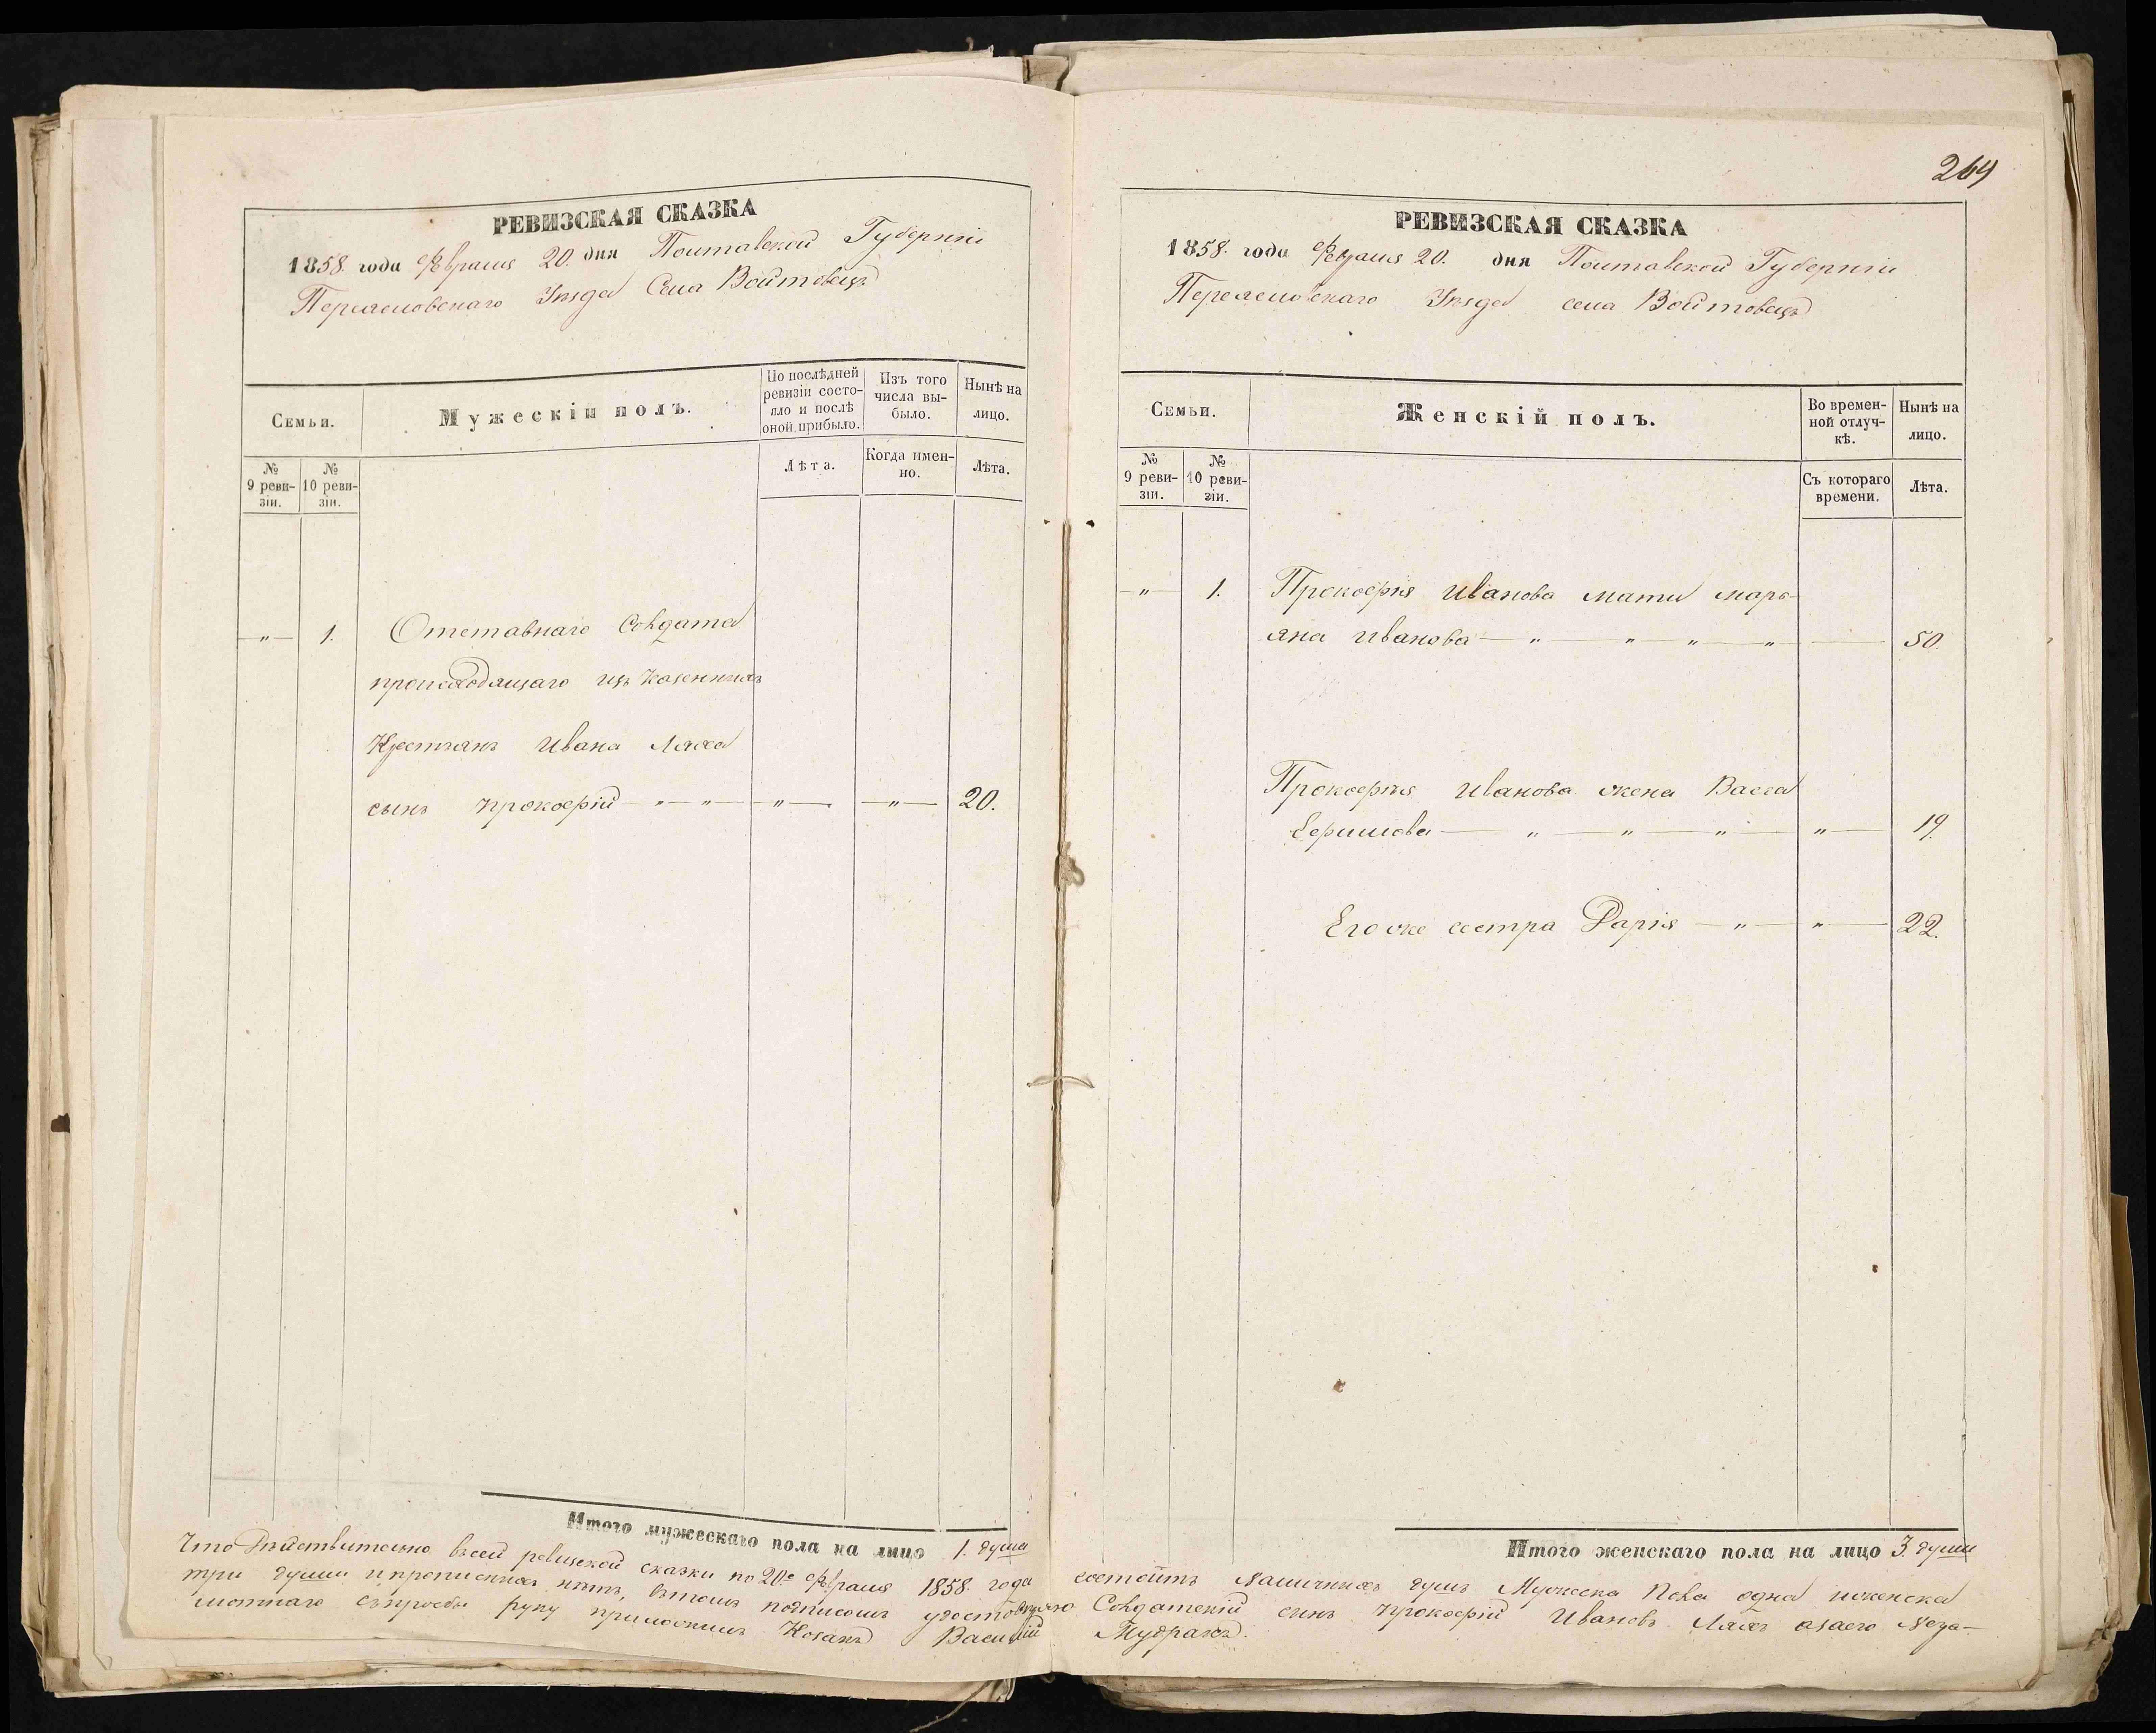 РЕВИЗСКАЯ СКАЗКА
1858. года февраля 20. дня Полтавской Губернiи
Переясловскаго Уѣзда Села Войтовецъ
Семьи.
Мужескiй полъ.
По послѣдней ревизiи состо-
яло и послѣ оной прибыло.
Изъ того числа вы-
было.
Нынѣ на лицо.
№ 9 реви-
зiи.
№ 10 реви-
зiи.
Лѣта.
Когда имен-
но.
Лѣта.
—"— 1. Отставнаго Солдата
происходящаго изъ Казенныхъ
Крестьянъ Ивана Ляха
сынъ Прокофiй — " — " — " — — " — 20.
Итого мужескаго пола на лицо 1. душа
269
РЕВИЗСКАЯ СКАЗКА
1858. года февраля 20. дня Полтавской Губернiи
Переясловскаго Уѣзда села Войтовецъ
Семьи.
Женскiй полъ.
Во времен-
ной отлуч-
кѣ.
Нынѣ на лицо.
№ 9 реви-
зiи.
№ 10 реви-
зiи.
Съ котораго времени.
Лѣта.
—"— 1. Прокофiя Иванова мати марь-
яна Иванова — " — " — " — " — 50.
Прокофiя Иванова жена Васса
— " — " — " — " — 19.
Его же сестра Дарiя — " — " — 22.
Итого женскаго пола на лицо 3. души
Что Дѣйствительно всей ревизской сказки по 20.е февраля 1858. года состоитъ наличныхъ душъ Мужеска Пола одна иженска
три души ипрописныхъ нѣтъ, втомъ подписомъ удостовѣряю Солдатскiй сынъ Прокофiй Ивановъ Ляхъ азаего Негра-
мотнаго съпрозбы руку приложилъ Козакъ Василiй